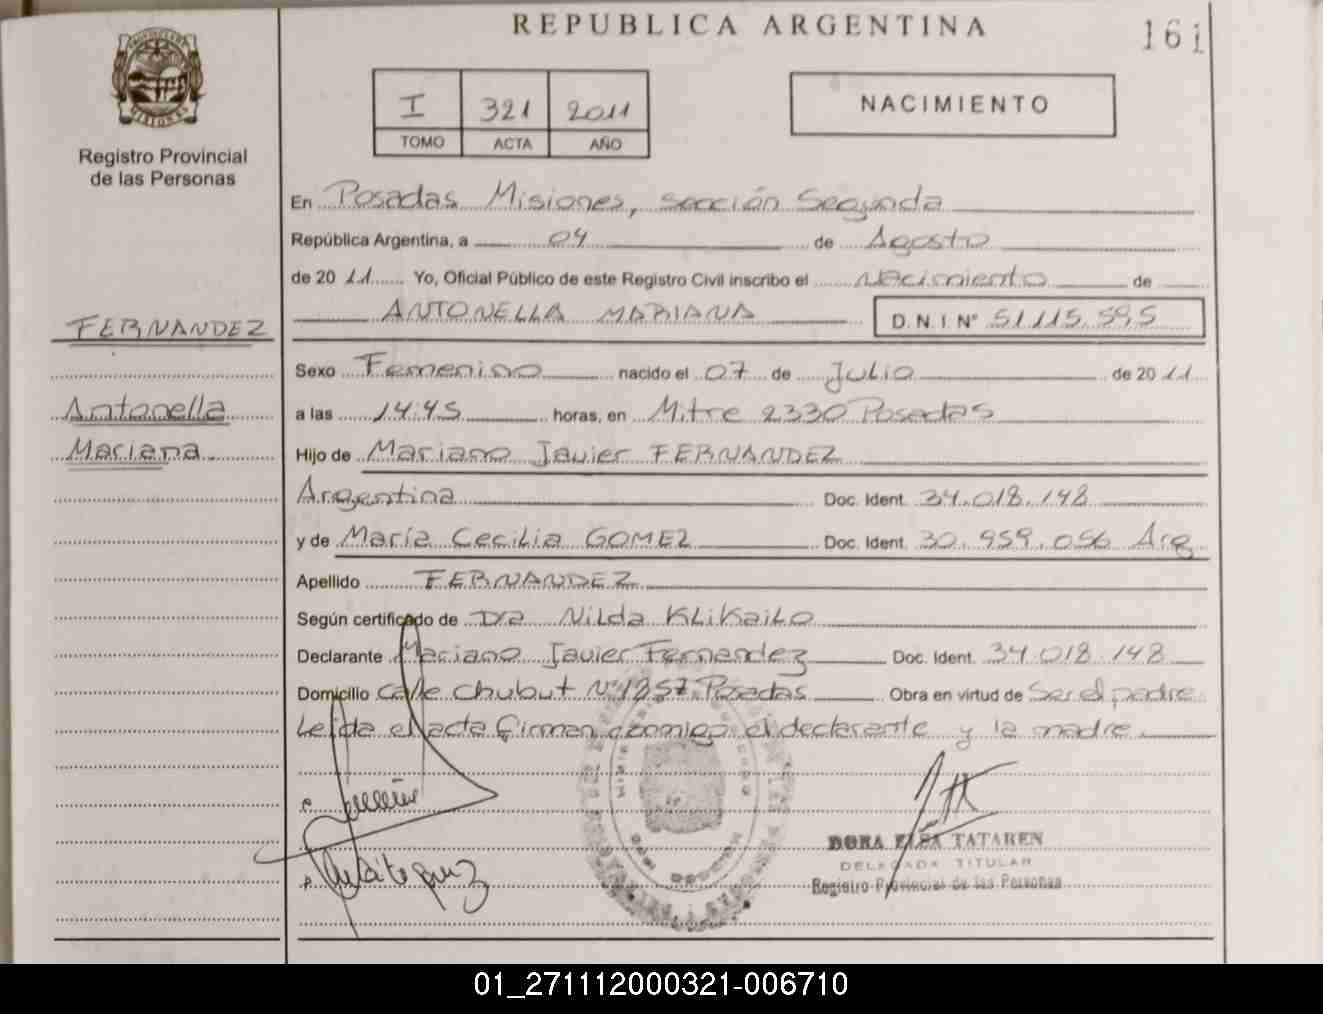 REPUBLICA ARGENTINA
161
Registro Provincial
de las Personas
I 321 2011
TOMO ACTA AÑO
NACIMIENTO
En Posadas Misiones, sección Segunda
República Argentina, a 04 de Agosto
de 2011 Yo, Oficial Público de este Registro Civil inscribo el Nacimiento de
ANTONELLA MARIANA D.N.I. Nº 51.115.595
FERNANDEZ
Antonella
Mariana
Sexo Femenino nacido el 07 de Julio de 2011
a las 14:45 horas, en Mitre 2330 Posadas
Hijo de Mariano Javier FERNANDEZ
Argentina Doc. Ident. 34.018.148
y de María Cecilia GOMEZ Doc. Ident. 30.959.056 Arg
Apellido FERNANDEZ
Según certificado de Dra Nilda KLiKaiLo
Declarante Mariano Javier Fernandez Doc. Ident. 34.018.148
Domicilio Calle Chubut Nº 1257 Posadas Obra en virtud de Ser el padre
Leida el acta firman conmigo el declarante y la madre
DORA ELSA TATAREN
DELEGADA TITULAR
Registro Provincial de las Personas
01_271112000321-006710